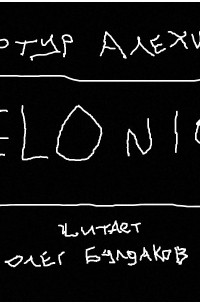 ОТУР АЛЕХИ
ELONIC
Читает
ОЛЕГ БУЛДАКОВ